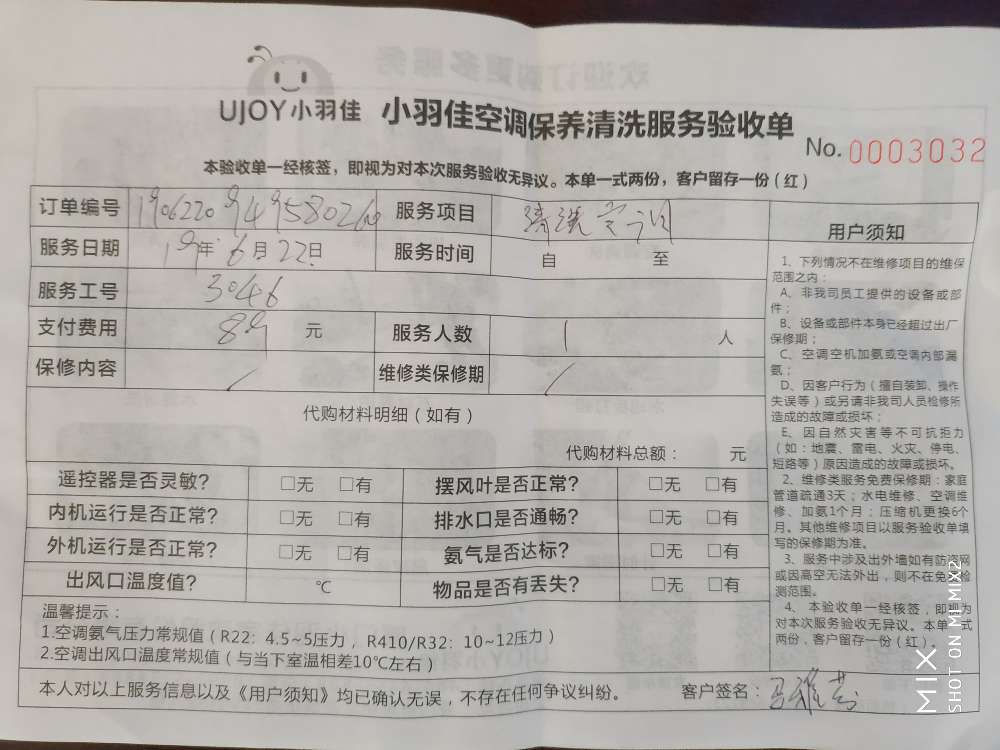 UJOY小羽佳 小羽佳空调保养清洗服务验收单
No. 0003032
本验收单一经核签，即视为对本次服务验收无异议。本单一式两份，客户留存一份（红）
订单编号 服务项目 清洗空调
服务日期 19年 6月 22日 服务时间 自 至
服务工号 3046
支付费用 89 元 服务人数 1 人
保修内容 / 维修类保修期 /
代购材料明细（如有）
代购材料总额： 元
遥控器是否灵敏？ □无 □有 摆风叶是否正常？ □无 □有
内机运行是否正常？ □无 □有 排水口是否通畅？ □无 □有
外机运行是否正常？ □无 □有 氨气是否达标？ □无 □有
出风口温度值？ ℃ 物品是否有丢失？ □无 □有
温馨提示：
1.空调氨气压力常规值（R22：4.5~5压力，R410/R32：10~12压力）
2.空调出风口温度常规值（与当下室温相差10℃左右）
本人对以上服务信息以及《用户须知》均已确认无误，不存在任何争议纠纷。 客户签名：
用户须知
1、下列情况不在维修项目的维保
范围之内：
A、非我司员工提供的设备或部
件；
B、设备或部件本身已经超过出厂
保修期；
C、空调空机加氨或空调内部漏
氨；
D、因客户行为（擅自装卸、操作
失误等）或另请非我司人员检修所
造成的故障或损坏；
E、因自然灾害等不可抗拒力
（如：地震、雷电、火灾、停电、
短路等）原因造成的故障或损坏。
2、维修类服务免费保修期：家庭
管道疏通3天；水电维修、空调维
修、加氨1个月；压缩机更换6个
月。其他维修项目以服务验收单填
写的保修期为准。
3、服务中涉及出外墙如有防盗网
或因高空无法外出，则不在免费检
测范围。
4、本验收单一经核签，即视为
对本次服务验收无异议。本单一式
两份，客户留存一份（红）。
MIX
SHOT ON MI MIX2